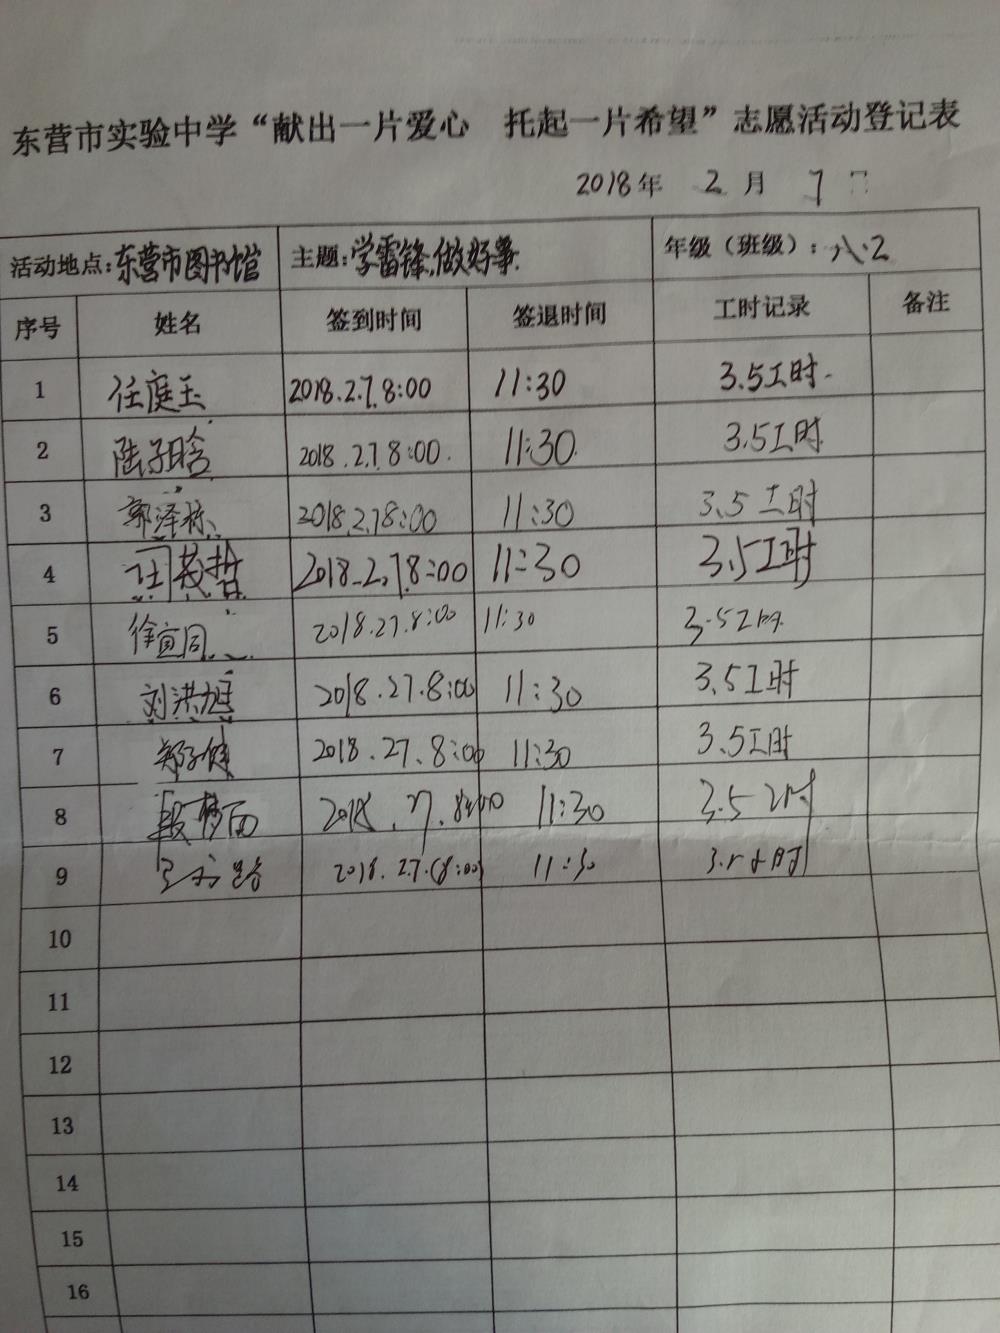 东营市实验中学“献出一片爱心 托起一片希望”志愿活动登记表
2018年 2 月 7 日
活动地点:东营市图书馆 主题:学雷锋,做好事. 年级(班级):八.2
序号 姓名 签到时间 签退时间 工时记录 备注
1 任庭玉 2018.2.7.8:00 11:30 3.5工时.
2 陆子晗 2018.2.7.8:00. 11:30. 3.5工时
3 郭泽栋 2018.2.7 8:00 11:30 3.5工时
4 2018.2.7 8:00 11:30 3.5工时
5 徐宣同 2018.27.8:00 11:30 3.5工时
6 刘洪旭 2018.27.8:00 11:30 3.5工时
7 郑子健 2018.27.8:00 11:30 3.5工时
8 段梦 11:30 3.5
9 2018.2.7.(8:00) 11:30
10
11
12
13
14
15
16